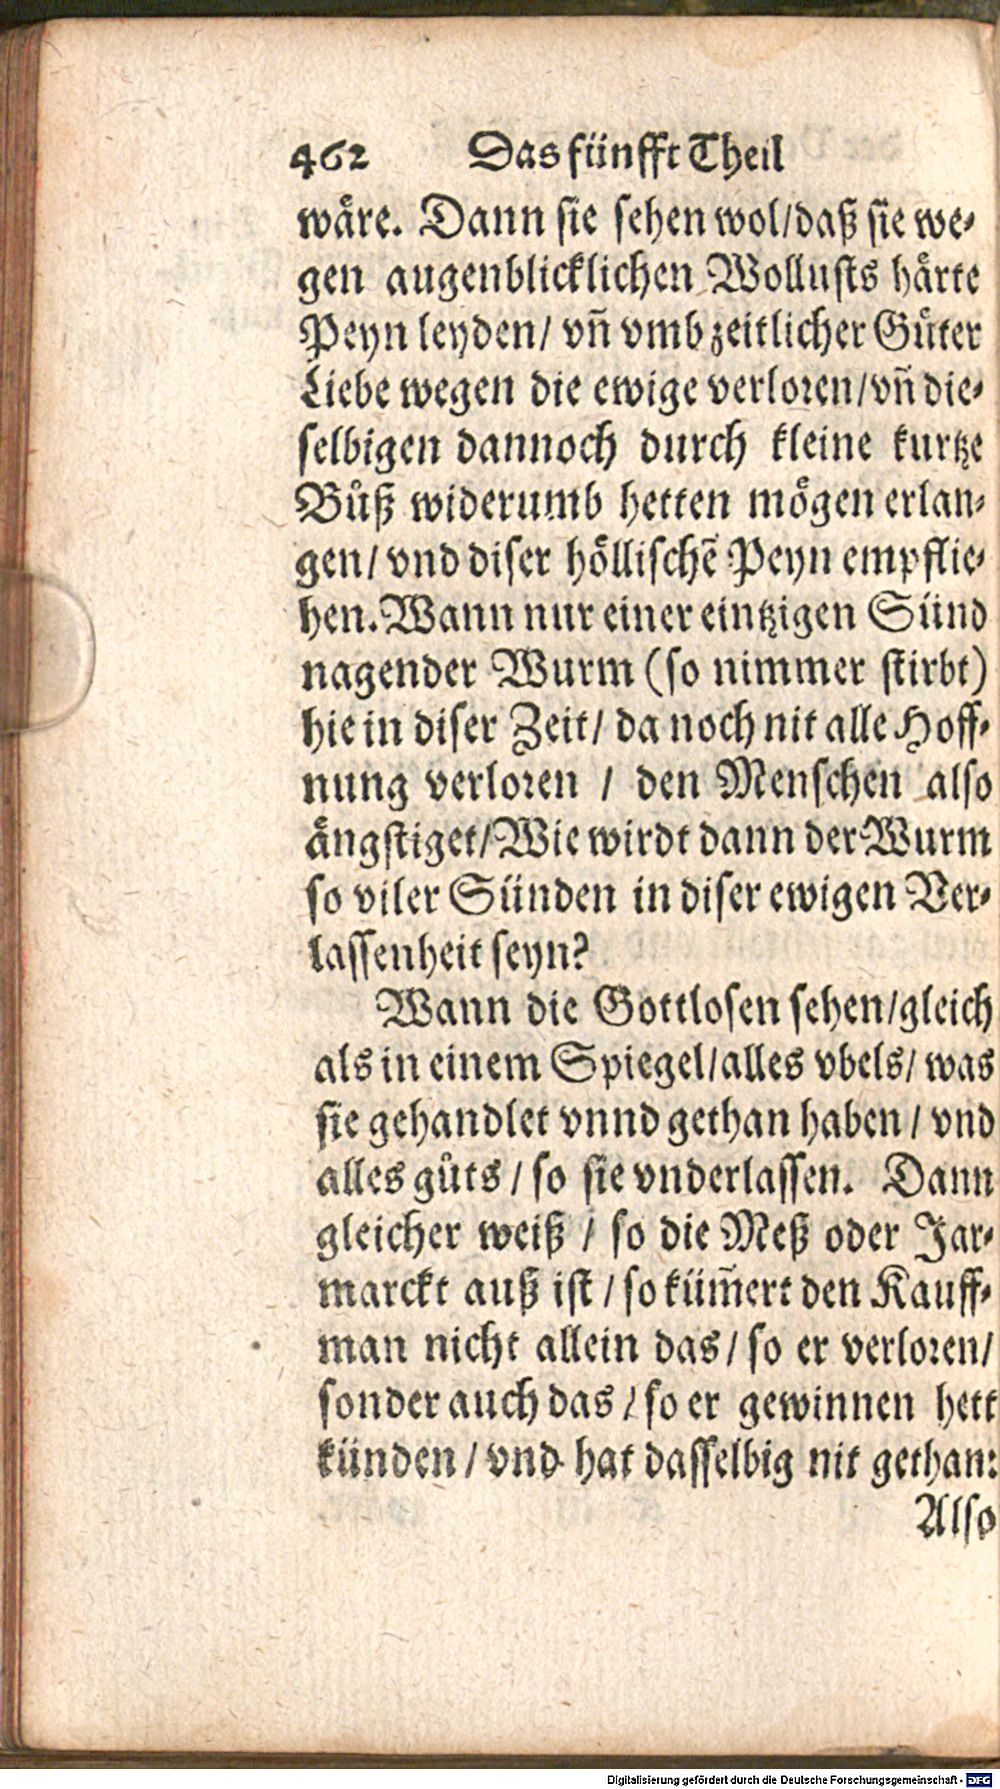 462 Das fünfft Theil
wåre. Dann sie sehen wol/daß sie we-
gen augenblicklichen Wollusts hårte
Peyn leyden/ vn̄ vmb zeitlicher Gůter
Liebe wegen die ewige verloren/vn̄ die-
selbigen dannoch durch kleine kurtze
Bůß widerumb hetten mögen erlan-
gen/ vnd diser höllischē Peyn empflie-
hen. Wann nur einer eintzigen Sünd
nagender Wurm (so nimmer stirbt)
hie in diser Zeit/ da noch nit alle Hoff-
nung verloren / den Menschen also
ängstiget/ Wie wirdt dann der Wurm
so viler Sünden in diser ewigen Ver-
lassenheit seyn?
Wann die Gottlosen sehen/gleich
als in einem Spiegel/alles vbels/ was
sie gehandlet vnnd gethan haben / vnd
alles gůts / so sie vnderlassen. Dann
gleicher weiß / so die Meß oder Jar-
marckt auß ist / so küm̄ert den Kauff-
man nicht allein das / so er verloren/
sonder auch das / so er gewinnen hett
künden / vnd hat dasselbig nit gethan:
Also
Digitalisierung gefördert durch die Deutsche Forschungsgemeinschaft - DFG